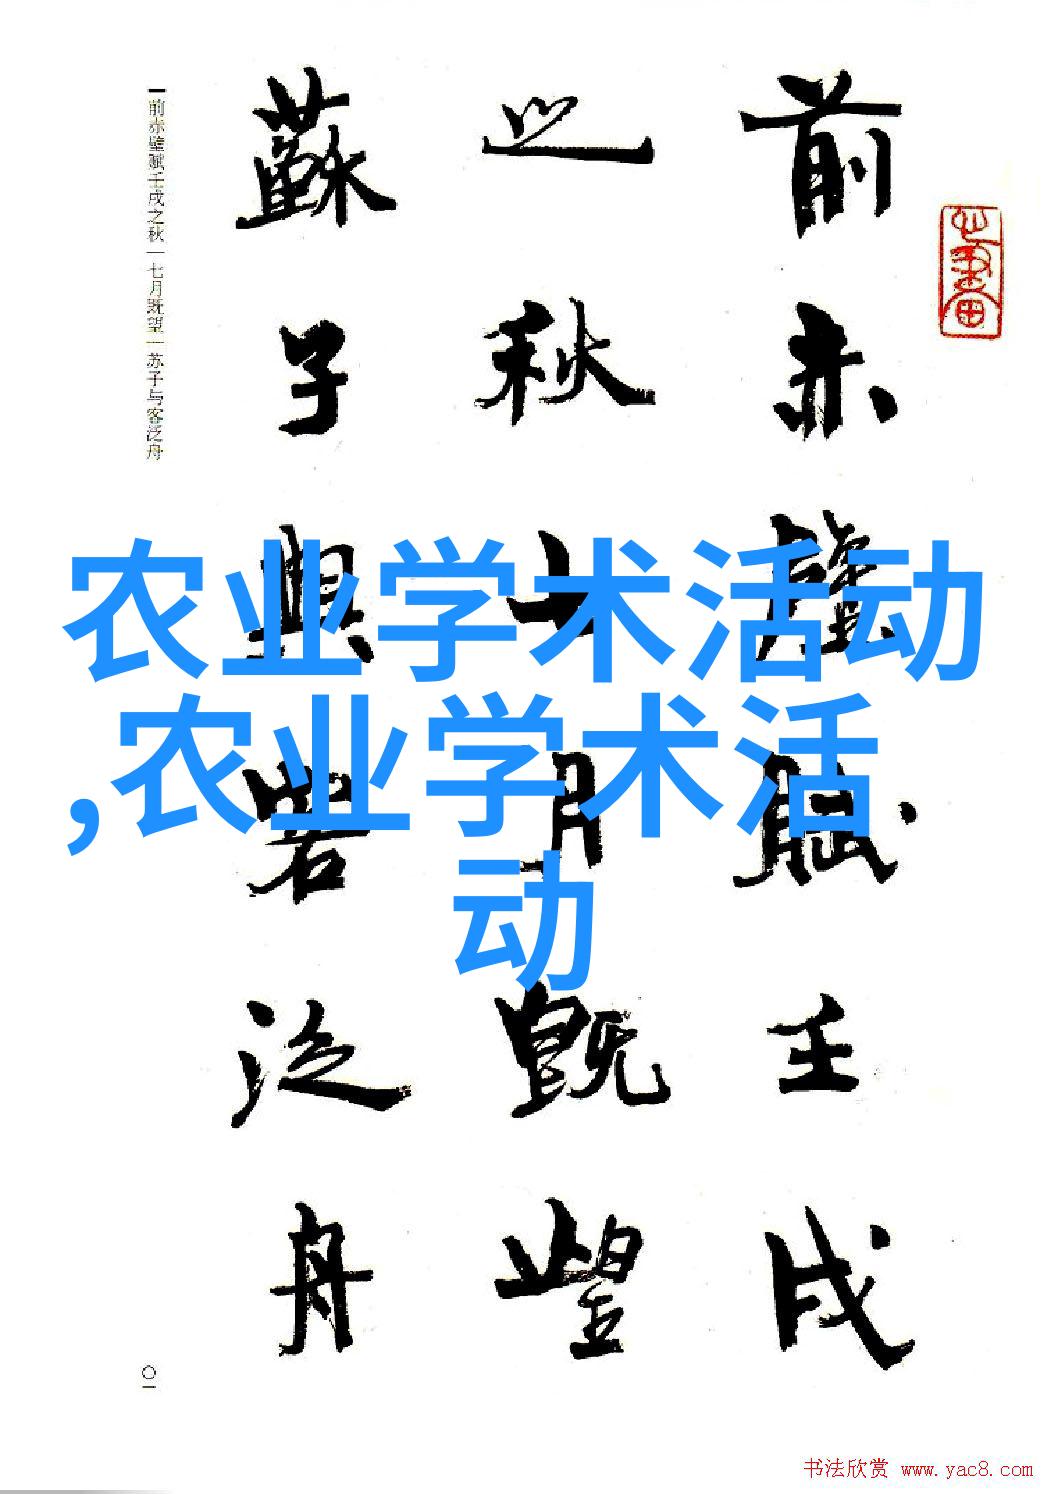 前赤壁賦壬戌
之秋七月既望
蘇子與客泛舟
前赤壁赋壬戌之秋 七月既望 苏子与客泛舟
〇一
农业学术活动
,农业学术活
动
书法欣赏 www.yac8.com